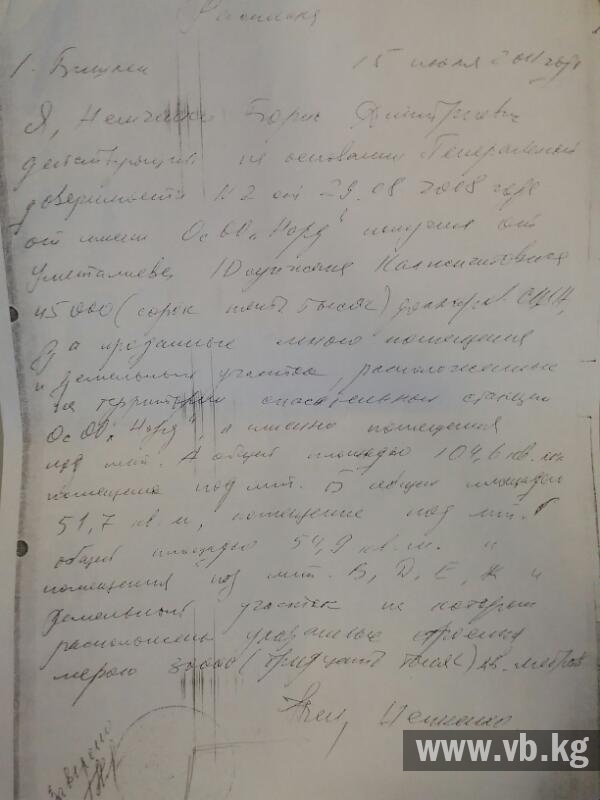 Расписка
г. Бишкек 15 июля 2011 года
Я, Немченко Борис Дмитриевич
действующий на основании Генеральной
доверенности № 2 от 29.08.2008 года
от имени ОсОО „Норд" получил от
45000 (сорок пять тысяч) долларов США,
за проданные мною помещения
и земельный участок, расположенные
на территории спасательной станции
ОсОО „Норд", а именно помещения
под лит. А общей площадью 104,6 кв. м
помещение под лит. Б общей площадью
51,7 кв. м, помещение под лит. Г
общей площадью 54,9 кв. м. и
помещения под лит. В, Д, Е, Ж и
земельный участок на котором
расположены указанные строения
мерою 30000 (тридцать тысяч) кв. метров
Немченко
Заверено
www.vb.kg